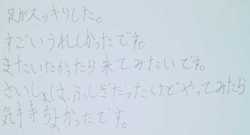 足がスッキリした。
すごいうれしかったです。
またいたかったり来てみたいです。
さいしょは、ふしぎだったけどやってみたら
気持ちよかったです。